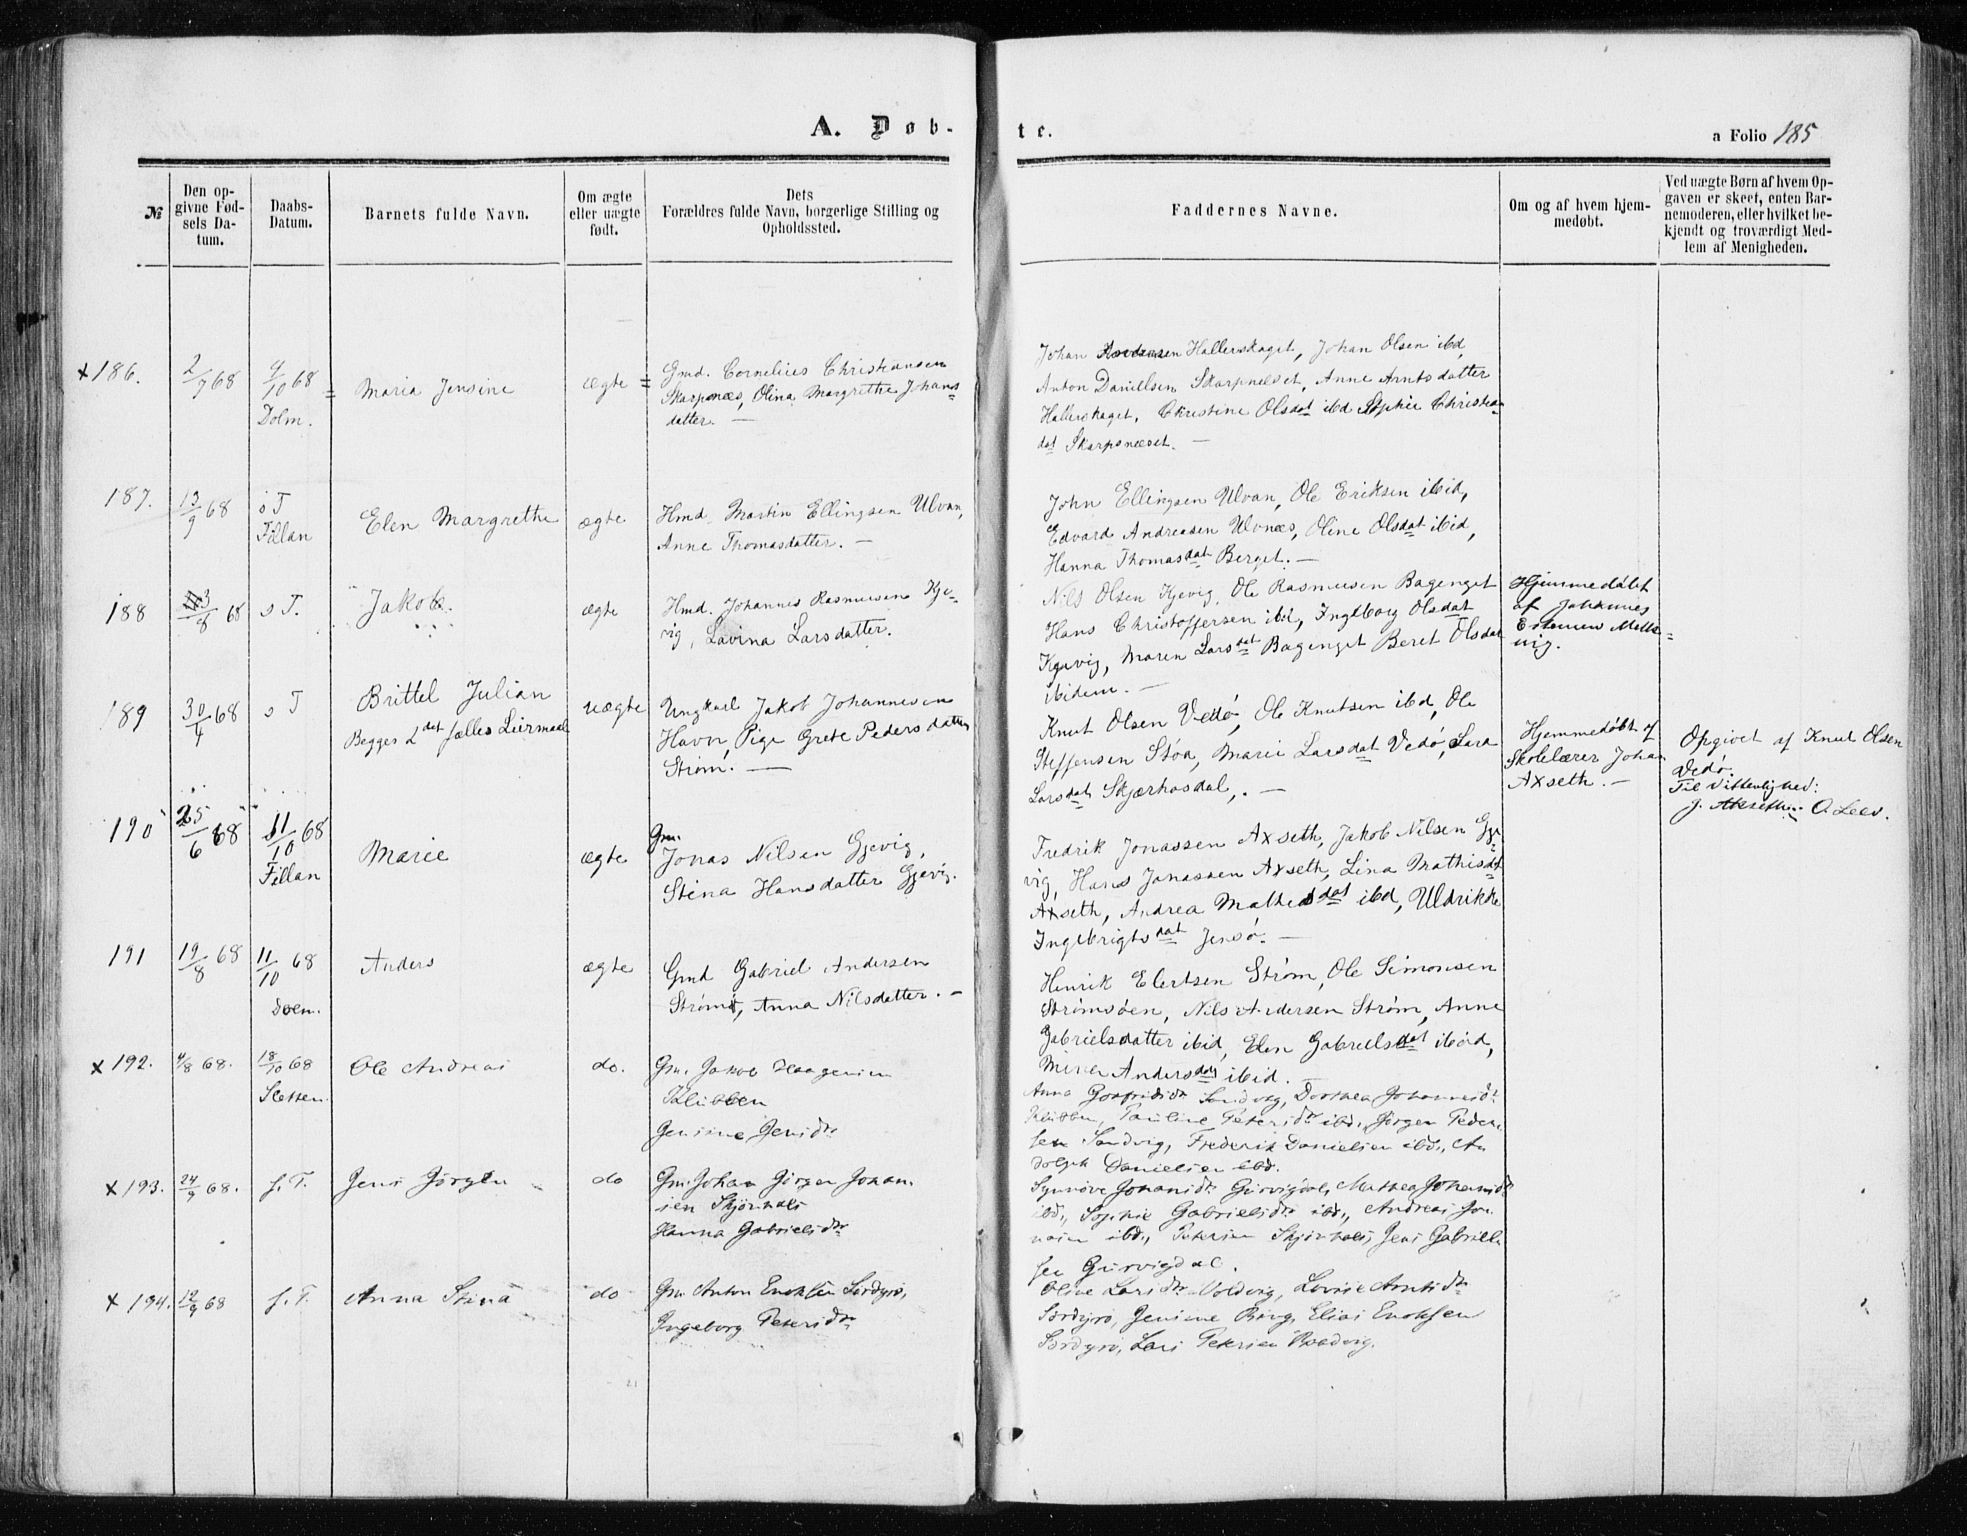 A. Døb-
te.
a Folio 185
№
Den op-
givne Fød-
sels Da-
tum.
Daabs-
Datum.
Barnets fulde Navn.
Om ægte
eller uægte
født.
Dets
Forældres fulde Navn, borgerlige Stilling og
Opholdssted.
Faddernes Navne.
Om og af hvem hjem-
medøbt.
Ved uægte Børn af hvem Op-
gaven er skeet, enten Bar-
nemoderen, eller hvilket be-
kjendt og troværdigt Med-
lem af Menigheden.
x 186.
2/7 68
4/10 68
Dolm.
Maria Jensine
ægte
Gmd. Cornelius Christiansen
Skarpnæs, Olina Margrethe Johans
datter. —
Johan Hallerskaget, Johan Olsen ibd,
Anton Danielsen Skarpneset, Anne Arntsdatter
Hallerskaget, Christine Olsdat ibd Sophie Christian
dat Skarpsnæset. —
187.
13/9 68
s T
Fillan
Elen Margrethe
ægte
Hmd. Martin Ellingsen Ulvan,
Anne Thomasdatter. —
John Ellingsen Ulvan, Ole Eriksen ibid,
Edvard Andreasen Ulvnæs, Oline Olsdat ibid,
Hanna Thomasdat Berget. —
188
3/8 68
s T.
Jakob.
ægte
Hmd. Johannes Rasmussen Kje-
vig, Lavina Larsdatter.
Nils Olsen Kjevig, Ole Rasmussen Bagenget
Hans Christoffersen ibd, Ingeborg Olsdat
Kjevig, Maren Larsdat Bagenget Beret Olsdat
ibidem. —
Hjemmedøbt
af Johannes
Estensen Melk-
vig.
189
30/4 68
s T
Brittel Julian
Begges 2det fælles Leiermaal
uægte
Ungkarl Jakob Johannesen
Havn, Pige Grete Pedersdatter
Strøm. —
Knut Olsen Vedø, Ole Knutsen ibd, Ole
Steffensen Støa, Marie Larsdat Vedø, Sara
Larsdat Skjærhosdal, . —
Hjemmedøbt af
Skolelærer Johan
Axseth. —
Opgivet af Knut Olsen
Vedø.
Til Vitterlighed:
J. Akseth. O. Leer.
190
25/6 68
11/10 68
Fillan
Marie
ægte
Gm.
Jonas Nilsen Gjevig,
Stina Hansdatter Gjevig.
Fredrik Jonassen Axseth, Jakob Nilsen Gje-
vig, Hans Jonassen Axseth, Lina Mathisdat
Axseth, Andrea Mathesdat ibd, Uldrikke
Ingebrigtsdat Jensø. —
191
19/8 68
11/10 68
Doem.
Anders
ægte
Gmd Gabriel Andersen
Strømø, Anna Nilsdatter. —
Henrik Elertsen Strøm, Ole Simonsen
Strømsøen, Nils Andersen Strøm, Anne
Gabrielsdatter ibid, Elen Gabrielsdat ibid,
Andersdat ibid. —
x 192.
4/8 68.
18/10 68
Sletten
Ole Andreas
do.
Gm. Jakob Haagensen
Klubben
Jensine Jensdtr
Anna Sandvig, Dorthea Johannesdtr
Klubben, Pauline Petersdtr ibd., Jørgen Peder-
sen Sandvig, Frederik Danielsen ibd., A-
dolph Danielsen ibd.
x 193.
24/9 68.
s. T.
Jens Jørgen
do
Gm. Johan Jørgen Johan-
sen
Hanna Gabrielsdtr
Synnøve Johansdtr Gurvigdal, Mathea Johansdtr
ibd., Sophie Gabrielsdtr ibd., Andreas Jo-
ibd., Petersen Jens Gabriel-
sen Gurvigdal.
x 194.
12/9 68
s. T.
Anna Stina
do
Gm. Anton Enoksen Sørdyrø,
Ingeborg Petersdtr
Oline Larsdtr Arntsdtr
Sørdyrø, Jensine Elias Enoksen
Sørdyrø, Lars Petersen